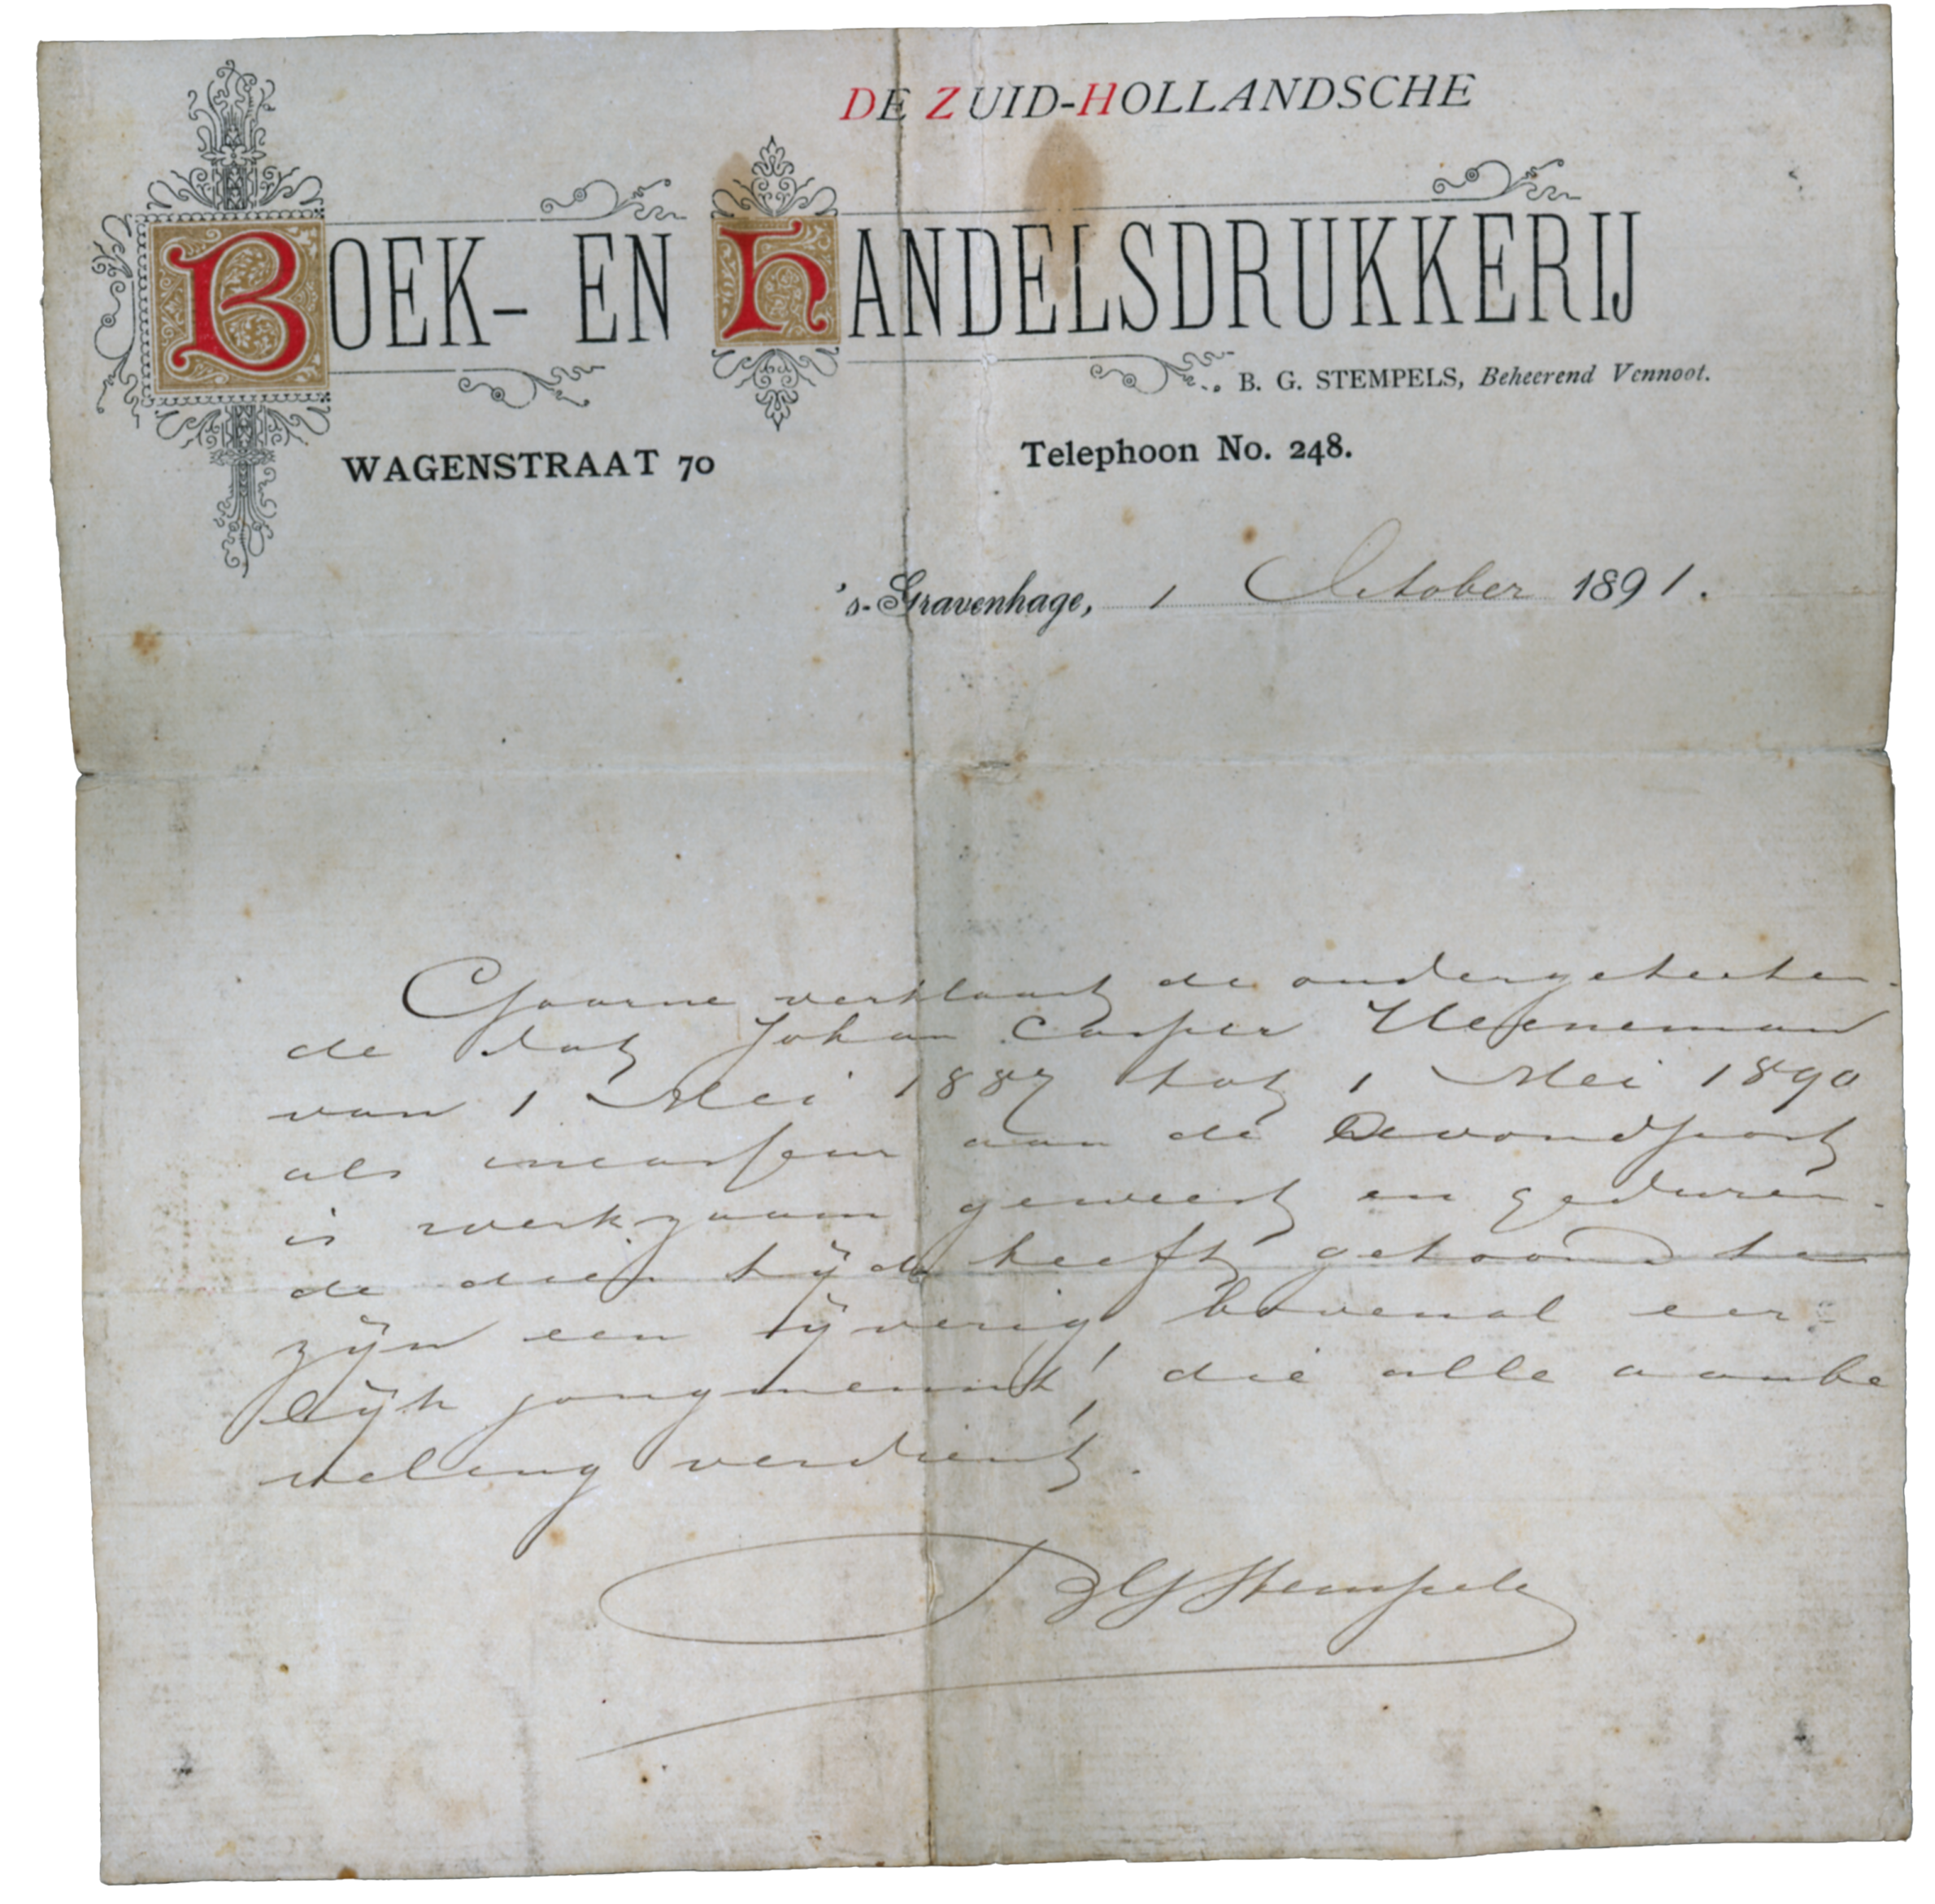 DE ZUID-HOLLANDSCHE
BOEK- EN HANDELSDRUKKERIJ
B. G. STEMPELS, Beheerend Vennoot.
WAGENSTRAAT 70 Telephoon No. 248.
's-Gravenhage, 1 October 1891.
Gaarne verklaart de ondergeteeken-
de dat Johan Casper Heijneman
van 1 Mei 1887 tot 1 Mei 1890
als incasseur aan de Avondpost
is werkzaam geweest en geduren-
de dien tijd heeft getoond te
zijn een ijverig, bovenal eer-
lijk jongmensch, die alle aanbe
veling verdient.
BG Stempels